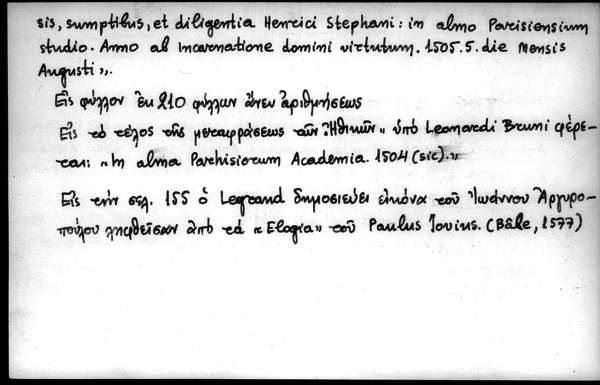 sis, sumptibus, et diligentia Henrici Stephani: in almo Parisiensium
studio. Anno ab incarnatione domini virtutum. 1505.5. die Mensis
Augusti».
Εἰς φύλλον ἐκ 210 φύλλων ἄνευ ἀριθμήσεως
Εἰς τὸ τέλος τῆς μεταφράσεως τῶν "Ἠθικῶν" ὑπὸ Leonardi Bruni φέρε-
ται: «In alma Parhisiorum Academia. 1504 (sic).»
Εἰς τὴν σελ. 155 ὁ Legrand δημοσιεύει εἰκόνα τοῦ Ἰωάννου Ἀργυρο-
πούλου ληφθεῖσαν ἀπὸ τὰ «Elogia» τοῦ Paulus Iovius. (Bâle, 1577)